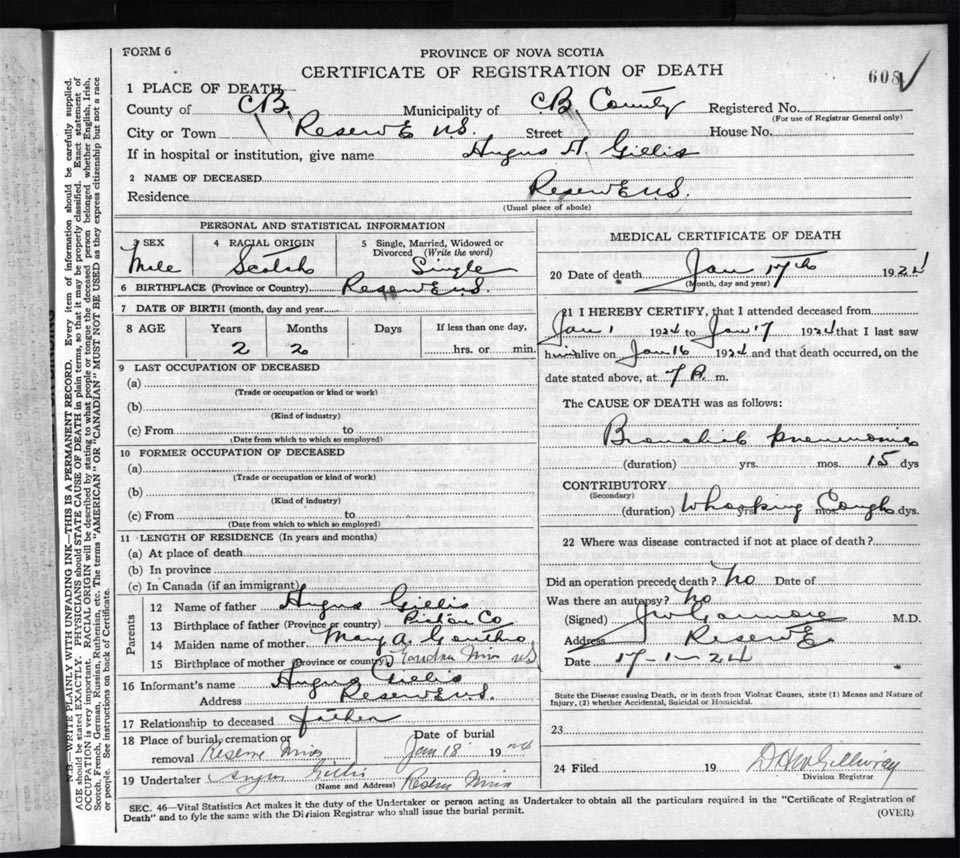 FORM 6
PROVINCE OF NOVA SCOTIA
CERTIFICATE OF REGISTRATION OF DEATH
608
1 PLACE OF DEATH
County of C.B. Municipality of C.B. County Registered No.
(For use of Registrar General only)
City or Town Reserve N.S. Street House No.
If in hospital or institution, give name Angus A. Gillis
2 NAME OF DECEASED
Residence Reserve N.S.
(Usual place of abode)
PERSONAL AND STATISTICAL INFORMATION
3 SEX 4 RACIAL ORIGIN 5 Single, Married, Widowed or Divorced (Write the word)
Male Scotch Single
6 BIRTHPLACE (Province or Country) Reserve N.S.
7 DATE OF BIRTH (month, day and year)
8 AGE Years Months Days If less than one day,
2 2 hrs. or min.
9 LAST OCCUPATION OF DECEASED
(a)
(Trade or occupation or kind or work)
(b)
(Kind of industry)
(c) From to
(Date from which to which so employed)
10 FORMER OCCUPATION OF DECEASED
(a)
(Trade or occupation or kind of work)
(b)
(Kind of industry)
(c) From to
(Date from which to which so employed)
11 LENGTH OF RESIDENCE (In years and months)
(a) At place of death
(b) In province
(c) In Canada (if an immigrant)
Parents
12 Name of father Angus Gillis
13 Birthplace of father (Province or country) Pictou Co
14 Maiden name of mother Mary A. Gouthro
15 Birthplace of mother (Province or country) Mines N.S.
16 Informant's name Angus Gillis
Address Reserve N.S.
17 Relationship to deceased father
18 Place of burial, cremation or removal Reserve Mines Date of burial Jan 18 1924
19 Undertaker Angus Gillis Reserve Mines
(Name and Address)
MEDICAL CERTIFICATE OF DEATH
20 Date of death Jan 17th 1924
(Month, day and year)
21 I HEREBY CERTIFY, that I attended deceased from
Jan 1 1924 to Jan 17 1924 that I last saw
him alive on Jan 16 1924 and that death occurred, on the
date stated above, at 7 m.
The CAUSE OF DEATH was as follows:
Bronchial pneumonia
(duration) yrs. mos. 15 dys
CONTRIBUTORY
(Secondary)
(duration) Whooping Cough yrs. mos. dys.
22 Where was disease contracted if not at place of death?
Did an operation precede death? No Date of
Was there an autopsy? No
(Signed) M.D.
Address Reserve
Date 17-1-24
State the Disease causing Death, or in death from Violent Causes, state (1) Means and Nature of
Injury, (2) whether Accidental, Suicidal or Homicidal.
23
24 Filed 19 D H McGillivray
Division Registrar
SEC. 46—Vital Statistics Act makes it the duty of the Undertaker or person acting as Undertaker to obtain all the particulars required in the "Certificate of Registration of
Death" and to fyle the same with the Division Registrar who shall issue the burial permit.
(OVER)
N.B.—WRITE PLAINLY WITH UNFADING INK—THIS IS A PERMANENT RECORD. Every item of information should be carefully supplied.
AGE should be stated EXACTLY. PHYSICIANS should STATE CAUSE OF DEATH in plain terms, so that it may be properly classified. Exact statement of
OCCUPATION is very important. RACIAL ORIGIN will be described by stating to what people or tongue the deceased person belonged whether English, Irish,
Scotch, French, German, Russian, Ruthenian, etc. The terms "AMERICAN" OR "CANADIAN" MUST NOT BE USED as they express citizenship but not a race
or people. See instructions on back of Certificate.